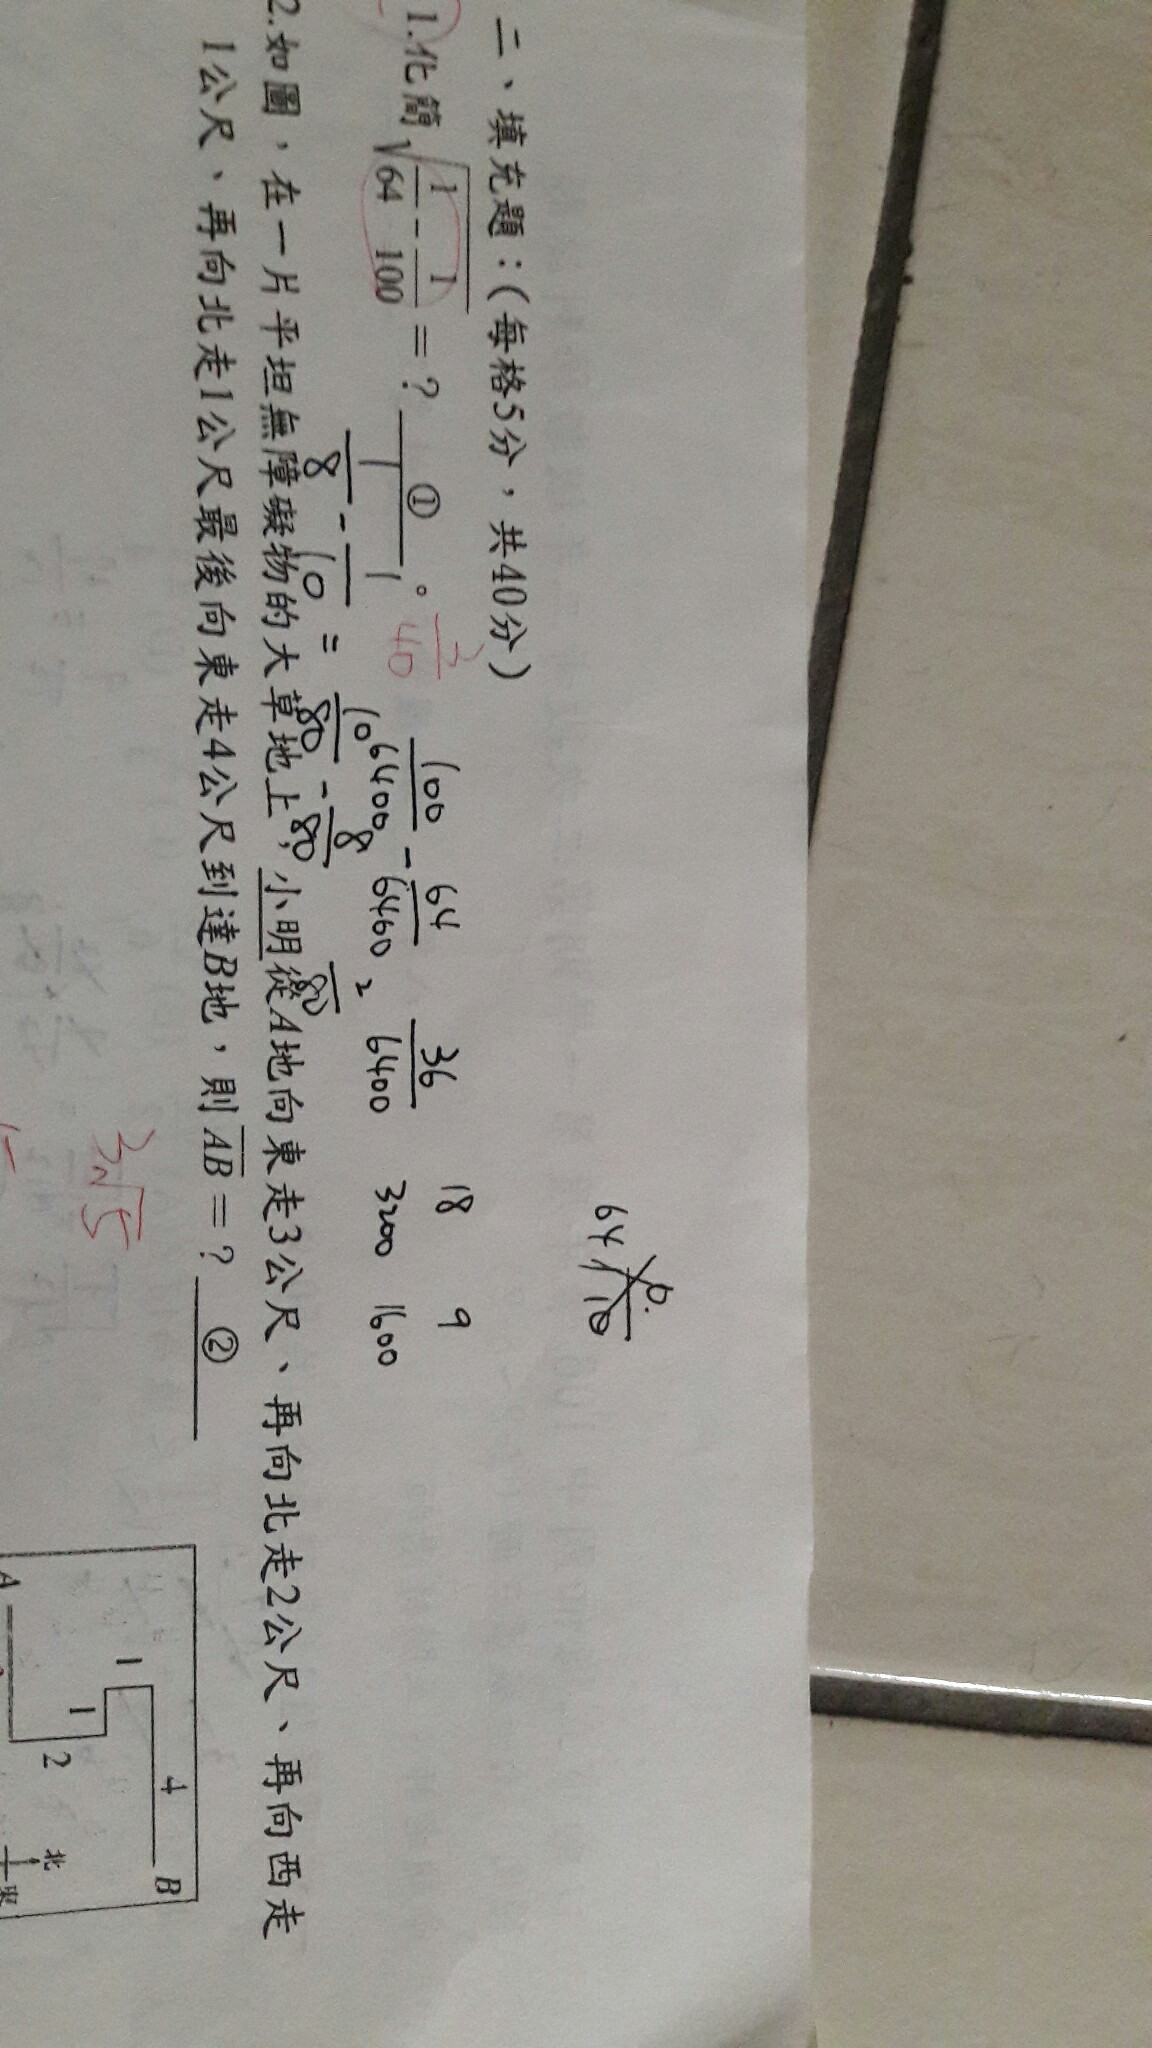 二、填充題：(每格5分，共40分)
1.化簡√(1/64 - 1/100) = ? ① 。 3/40
1/8 - 1/10 = 10/80 - 8/80 2/80
100/6400 - 64/6400 36/6400 18 9
3200 1600
64 10
2.如圖，在一片平坦無障礙物的大草地上，小明從A地向東走3公尺、再向北走2公尺、再向西走
1公尺、再向北走1公尺最後向東走4公尺到達B地，則AB = ? ②
3√5
4 B
1
1
2
A
北
東